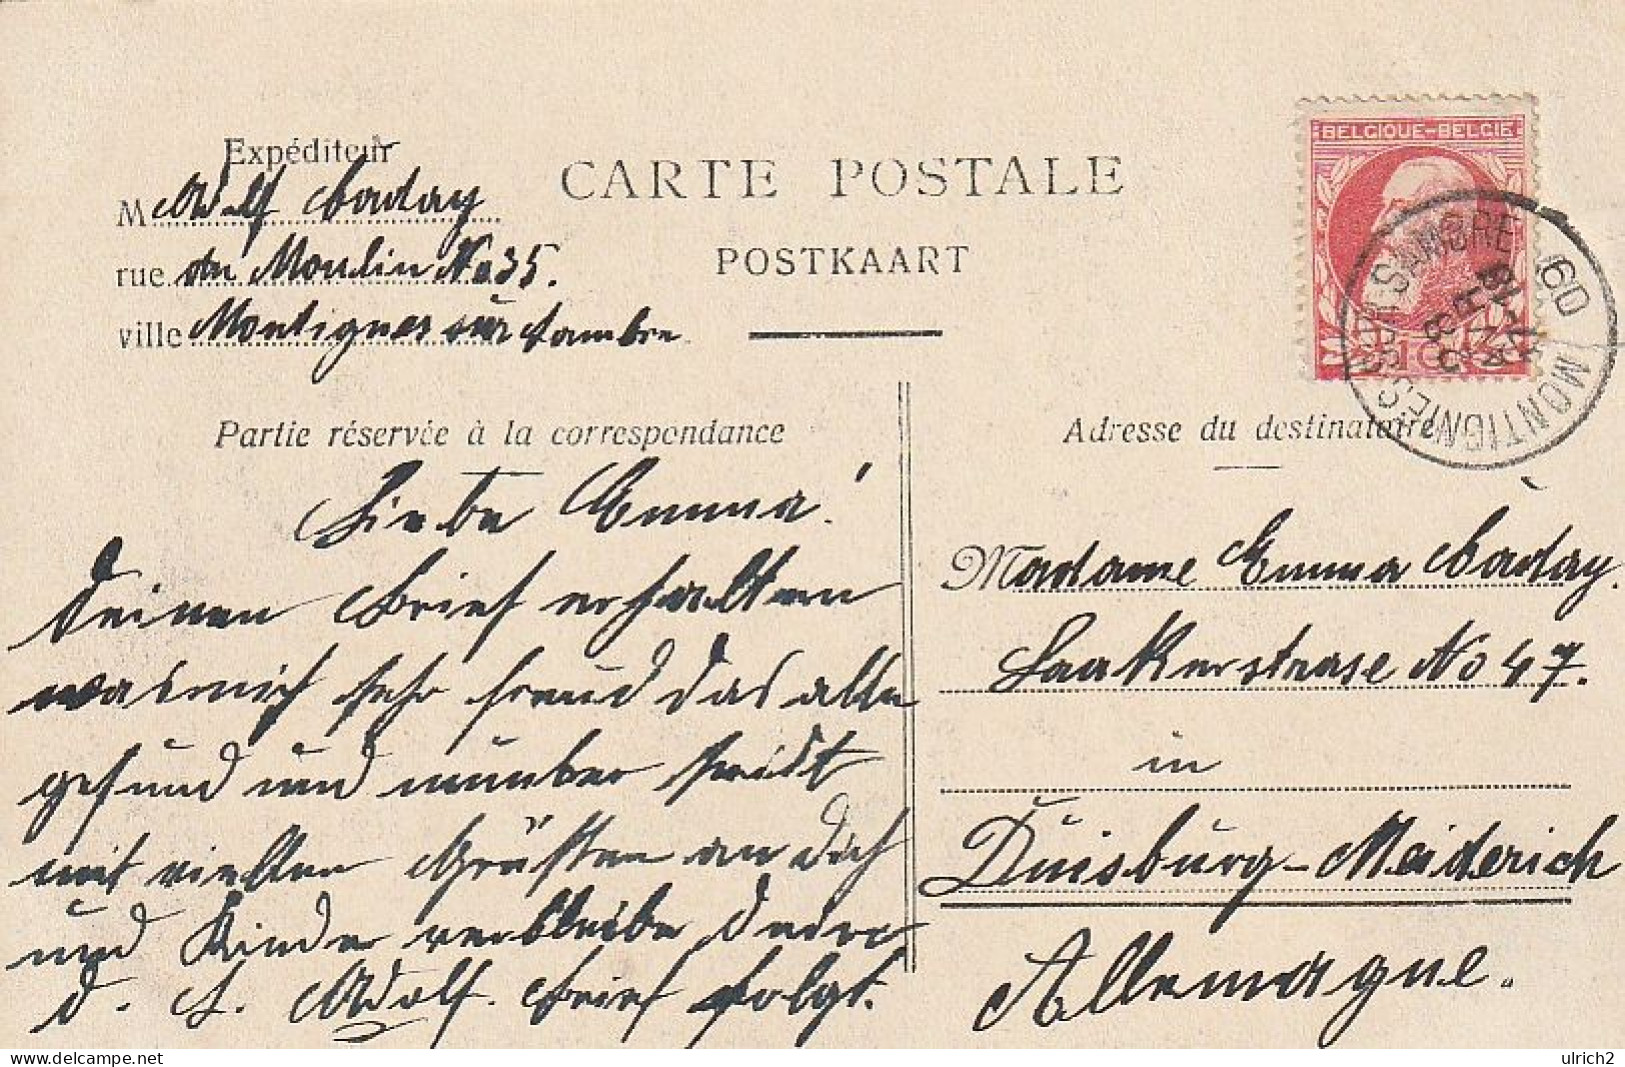 Expéditeur
M Adolf
rue du Moulin No 35.
ville Montignies sur Sambre
CARTE POSTALE
POSTKAART
BELGIQUE-BELGIE
10
MONTIGNIES SUR SAMBRE 6D
Partie réservée à la correspondance
Liebe Emma!
Deinen Brief erhalten
was mich sehr freud das alle
gesund und munter seidt
mit viellen Grüßten an Dich
und Kinder verbleibe
d. L. Adolf. Brief folgt.
Adresse du destinataire
Madame Emma
Laakerstrase No 47.
in
Duisburg-Meiderich
Allemagne.
delcampe.net
ulrich2